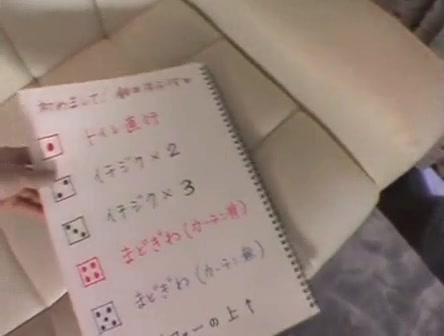 初めまして!
トイレ直行
イチジク×2
イチジク×3
まどぎわ(カーテン
まどぎわ(カーテン
ファーの上↑